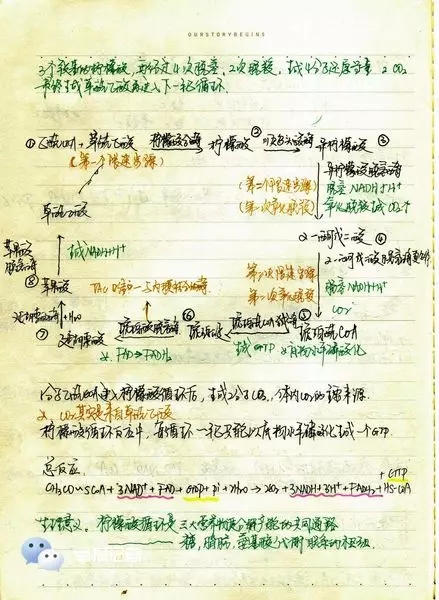 OURSTORYBEGINS
3个羧基的柠檬酸,共经过4次脱氢,2次脱羧,生成4分子还原当量 2CO₂
最终生成草酰乙酸再进入下一轮循环.
① 乙酰CoA + 草酰乙酸 柠檬酸合酶 柠檬酸 ② 顺乌头酸酶 异柠檬酸 ③
(第一个限速步骤)
异柠檬酸脱氢酶
(第二个限速步骤) 脱氢 NADH+H⁺
(第一次氧化脱羧) 氧化脱羧生成CO₂↑
草酰乙酸
α-酮戊二酸 ④
苹果酸脱氢酶
生成NADH+H⁺
α-酮戊二酸脱氢酶复合体
⑧ 苹果酸
第三个限速步骤 脱氢 NADH+H⁺
第二次氧化脱羧 CO₂
延胡索酸酶 +H₂O
⑦ 延胡索酸 琥珀酸脱氢酶 ⑥ 琥珀酸 琥珀酰CoA合成酶 ⑤ 琥珀酰CoA
FAD→FADH₂
生成GTP 底物水平磷酸化
1分子乙酰CoA进入柠檬酸循环后,生成2分子CO₂,体内CO₂的主要来源.
CO₂其实是来自草酰乙酸
柠檬酸循环反应中,每循环一轮只能以底物水平磷酸化生成一个GTP.
总反应
CH₃CO~SCoA + 3NAD⁺ + FAD + GDP + Pi + 2H₂O → 2CO₂ + 3NADH+3H⁺ + FADH₂ + HS-CoA + GTP
生理意义. 柠檬酸循环是三大营养物质分解产能的共同通路
糖,脂肪,氨基酸代谢联系的枢纽.